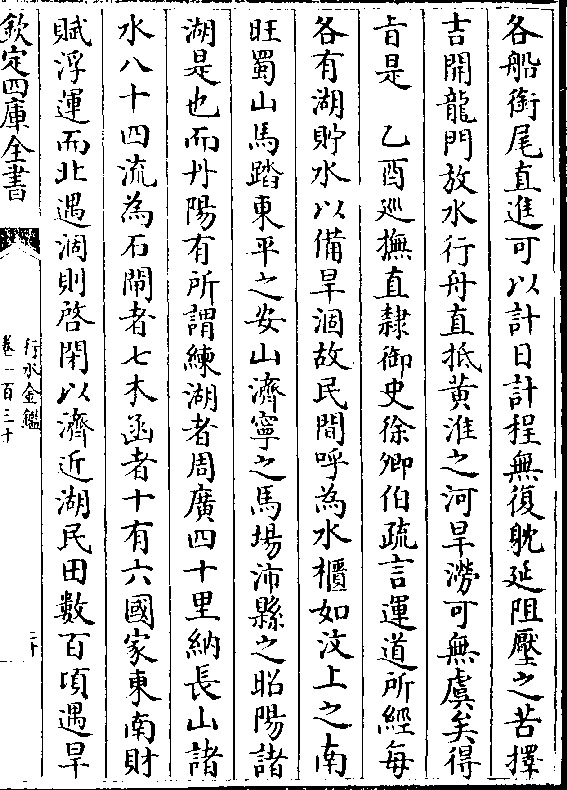 各船銜尾直進可以計日計程無復躭延阻壓之苦擇
吉開龍門放水行舟直抵黃淮之河旱澇可無虞矣得
㫖是　乙酉巡撫直隸御史徐卿伯疏言運道所經每
各有湖貯水以備旱涸故民間呼為水櫃如汶上之南
旺蜀山馬踏東平之安山濟寧之馬場沛縣之昭陽諸
湖是也而丹陽有所謂練湖者周廣四十里納長山諸
水八十四流為石閘者七木函者十有六國家東南財
賦浮運而北遇涸則啓閉以濟近湖民田數百頃遇旱
欽定四庫全書
行水金鑑
卷一百三十
二十